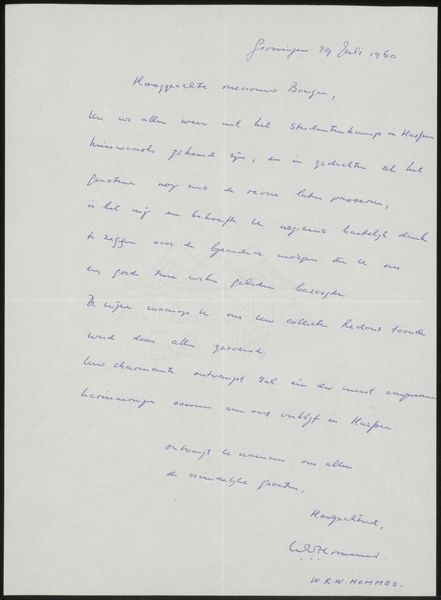 Groningen 29 Juli 1960
Hooggeachte mevrouw Bonger,
Nu we allen weer uit het studentenkamp in
huiswaarts gekeerd zijn, en in gedachten al het
genotene nog eens de revue laten passeren,
is het mij een behoefte U nogmaals hartelijk dank
te zeggen voor de bijzondere morgen die U ons
een goede twee weken geleden bezorgde.
De wijze waarop U ons Uw collectie Redons toonde
werd door allen gewaardeerd.
Uw charmante ontvangst zal een der meest aangename
herinneringen vormen aan ons verblijf in
ontvangt U namens ons allen
de vriendelijke groeten,
Hoogachtend,
WRWHommes.
W.R.W. HOMMES.